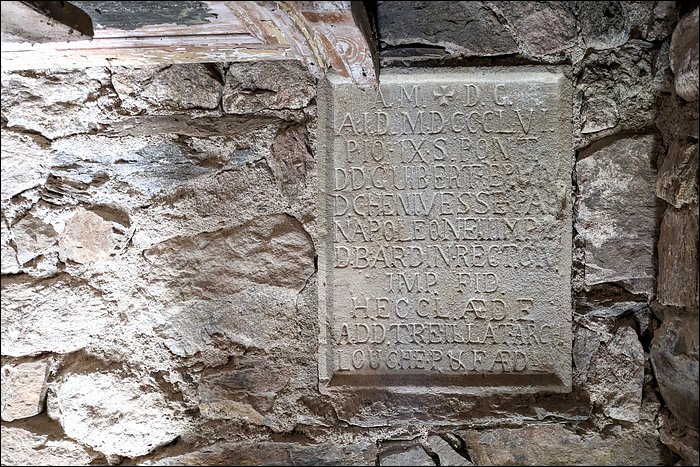 A.M. ✠ D.G.
A.I.D. M.D.CCC.LV.
PIO·IX·S. PONT
DD. GUIBERT EP.
D. CHENIVESSE
NAPOLEONE IMP.
D. BARDIN·RECTOR
IMP. FID.
H. ECCL. ÆD F
ADD. TREILLAT ARC
LOUCHE·P& F ÆD